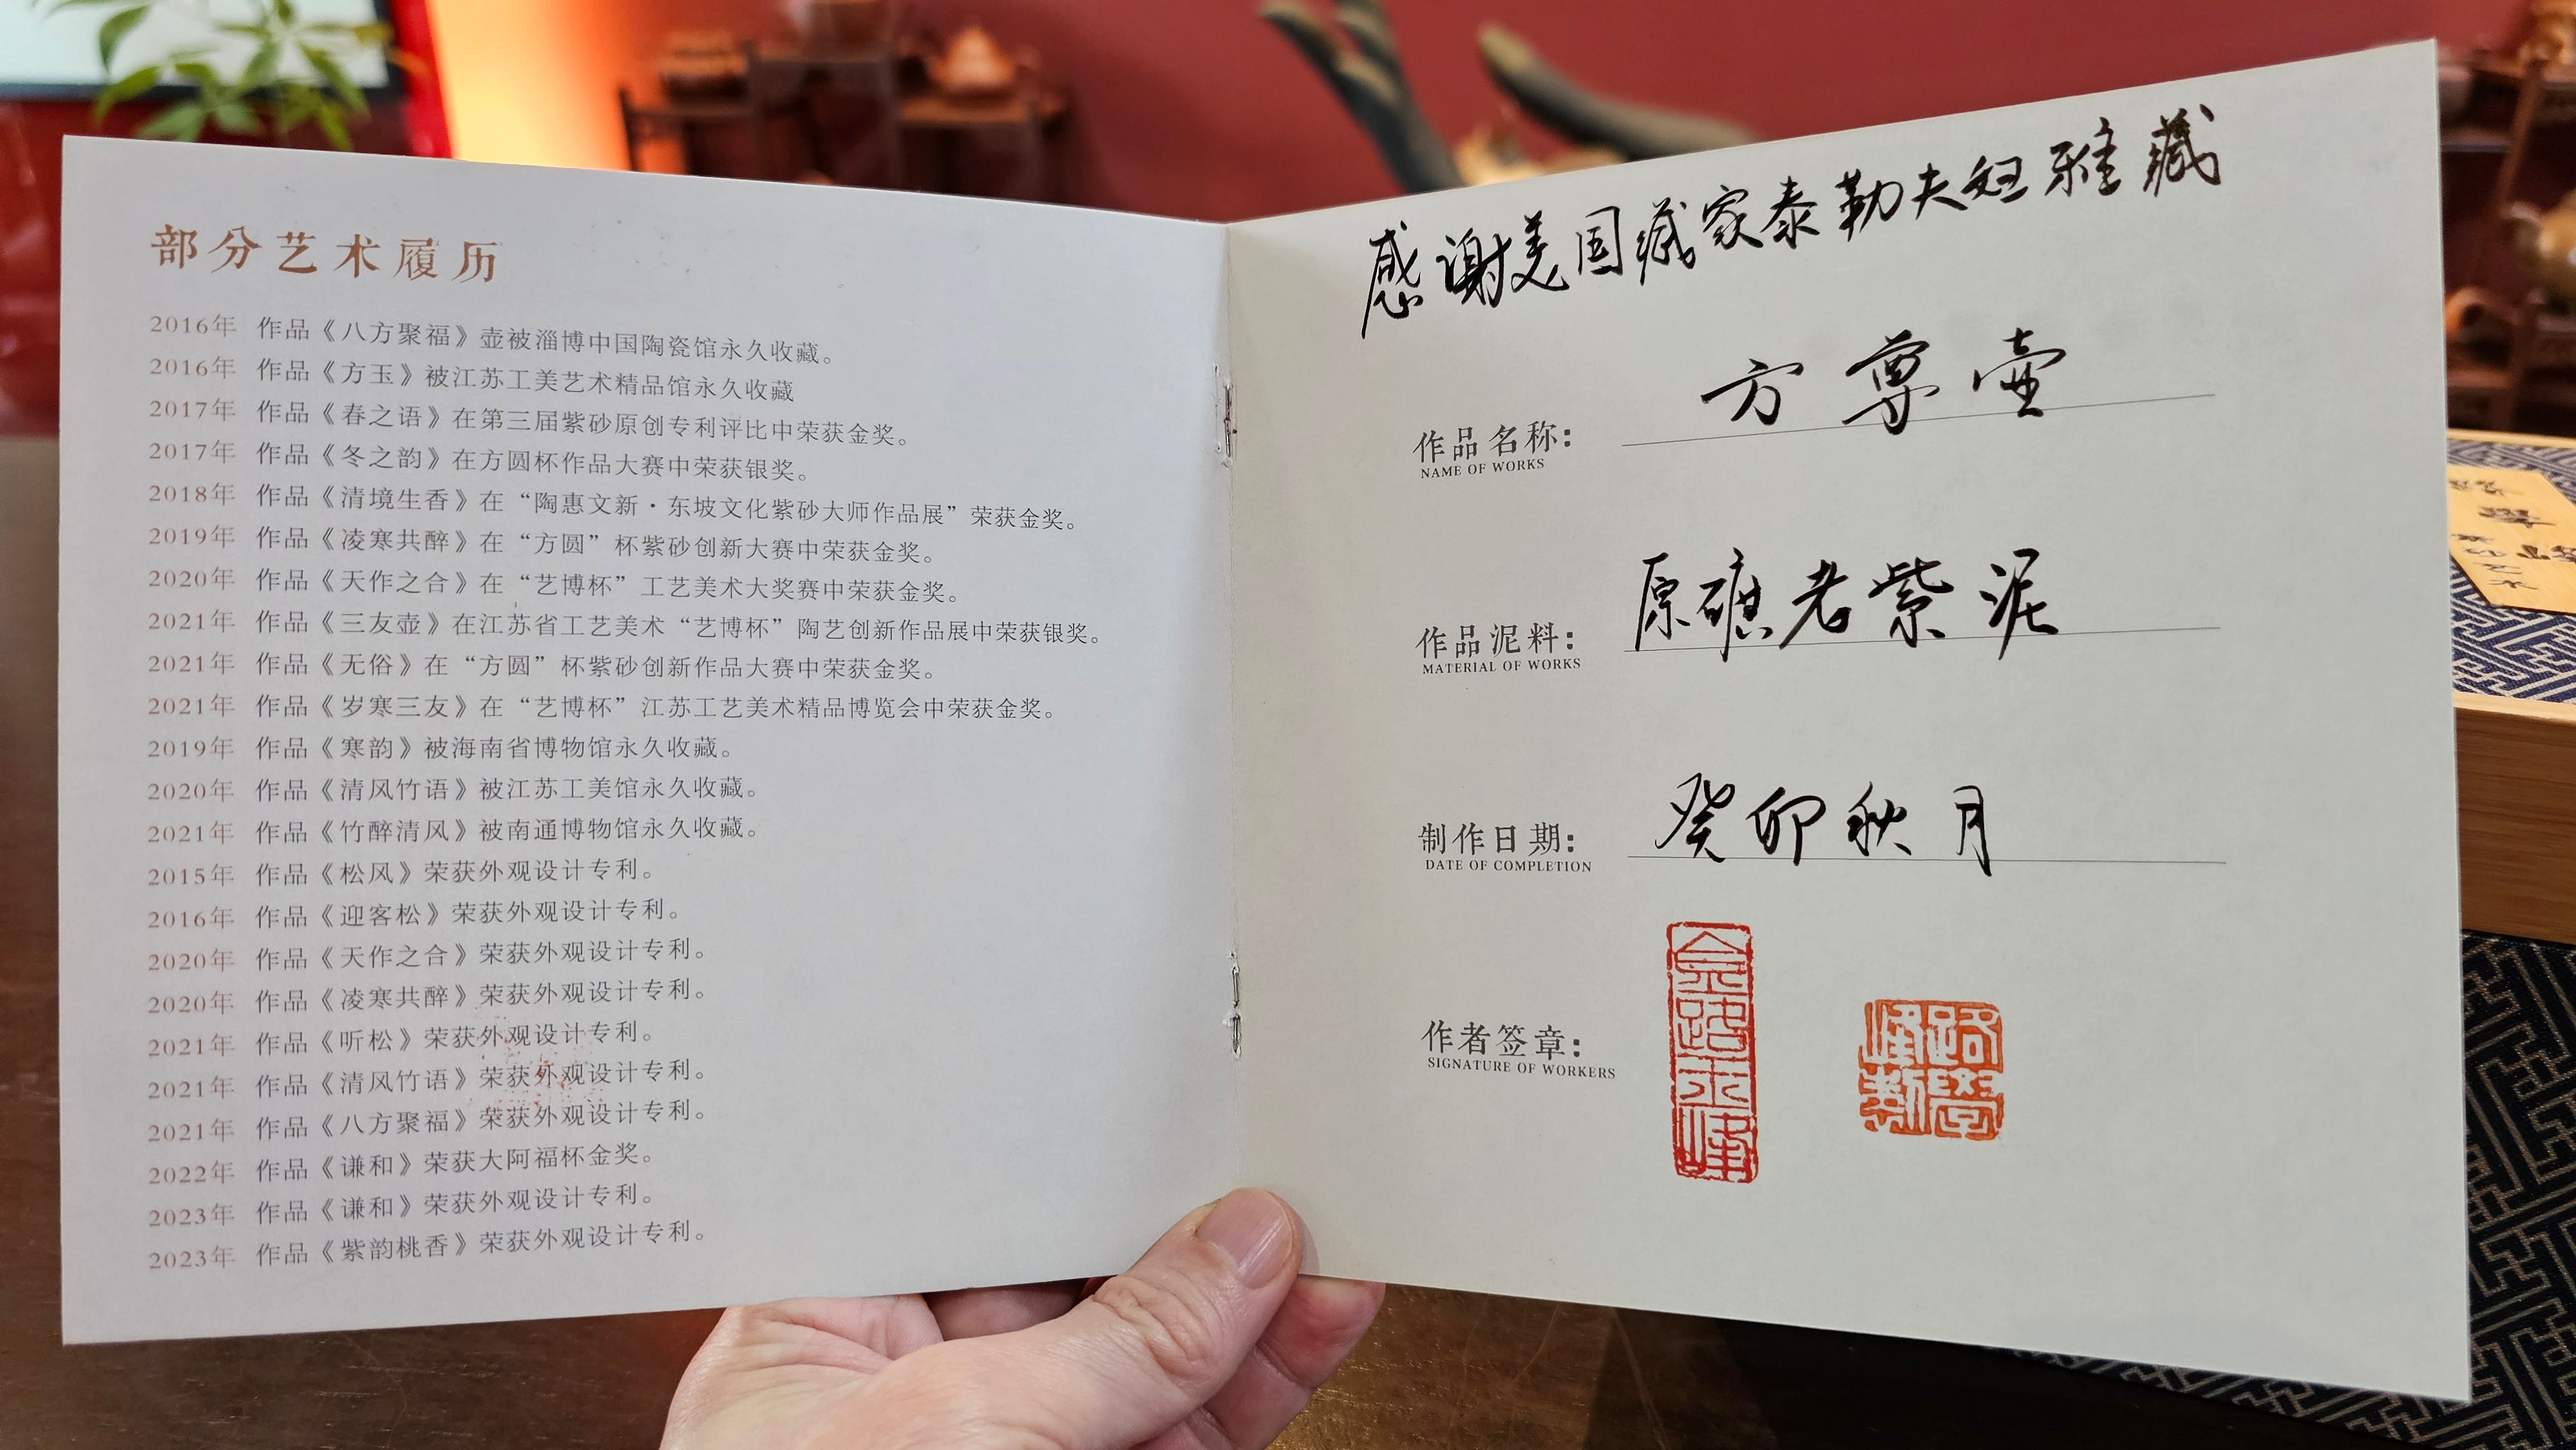 部分艺术履历
2016年 作品《八方聚福》壶被淄博中国陶瓷馆永久收藏。
2016年 作品《方玉》被江苏工美艺术精品馆永久收藏
2017年 作品《春之语》在第三届紫砂原创专利评比中荣获金奖。
2017年 作品《冬之韵》在方圆杯作品大赛中荣获银奖。
2018年 作品《清境生香》在“陶惠文新·东坡文化紫砂大师作品展”荣获金奖。
2019年 作品《凌寒共醉》在“方圆”杯紫砂创新大赛中荣获金奖。
2020年 作品《天作之合》在“艺博杯”工艺美术大奖赛中荣获金奖。
2021年 作品《三友壶》在江苏省工艺美术“艺博杯”陶艺创新作品展中荣获银奖。
2021年 作品《无俗》在“方圆”杯紫砂创新作品大赛中荣获金奖。
2021年 作品《岁寒三友》在“艺博杯”江苏工艺美术精品博览会中荣获金奖。
2019年 作品《寒韵》被海南省博物馆永久收藏。
2020年 作品《清风竹语》被江苏工美馆永久收藏。
2021年 作品《竹醉清风》被南通博物馆永久收藏。
2015年 作品《松风》荣获外观设计专利。
2016年 作品《迎客松》荣获外观设计专利。
2020年 作品《天作之合》荣获外观设计专利。
2020年 作品《凌寒共醉》荣获外观设计专利。
2021年 作品《听松》荣获外观设计专利。
2021年 作品《清风竹语》荣获外观设计专利。
2021年 作品《八方聚福》荣获外观设计专利。
2022年 作品《谦和》荣获大阿福杯金奖。
2023年 作品《谦和》荣获外观设计专利。
2023年 作品《紫韵桃香》荣获外观设计专利。
感谢美国藏家泰勒夫妇雅藏
作品名称: 方尊壶
NAME OF WORKS
作品泥料: 原礦老紫泥
MATERIAL OF WORKS
制作日期: 癸卯秋月
DATE OF COMPLETION
作者签章:
SIGNATURE OF WORKERS